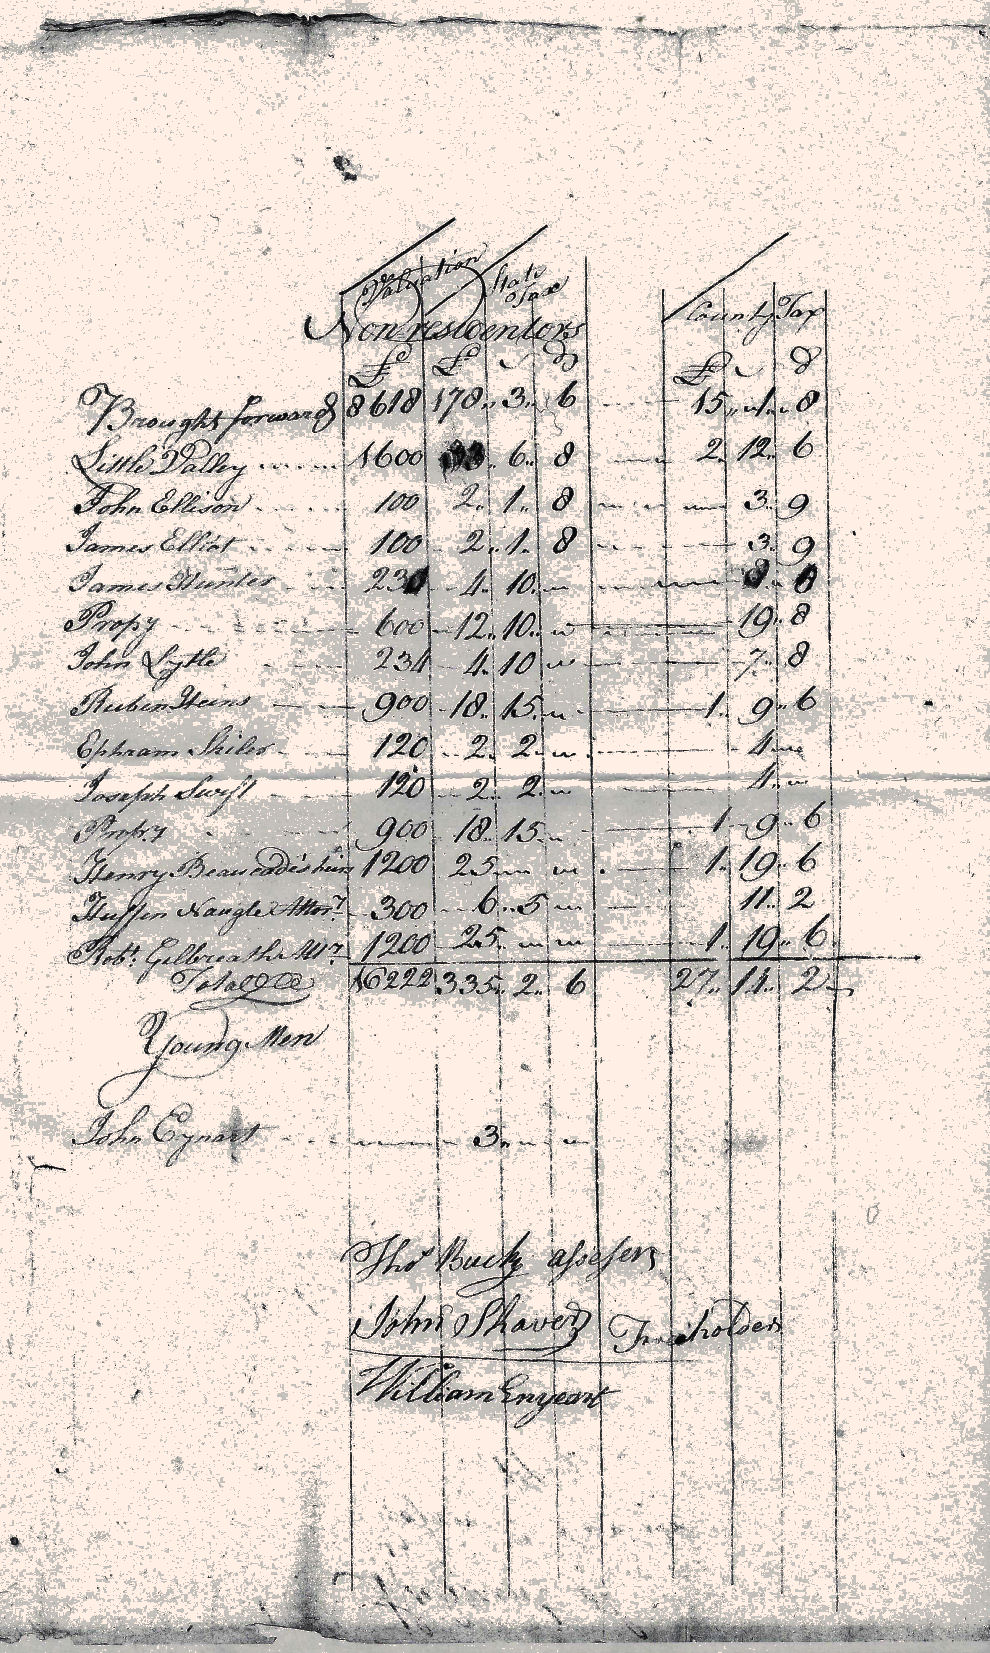 Valuation State Tax County Tax
Non residentors
£ £ s d £ s d
Brought forward 8618 178 .. 3 .. 6 15 .. 1 .. 8
Little Valley 1600 33 .. 6 .. 8 2 .. 12 .. 6
John Ellison 100 2 .. 1 .. 8 3 .. 9
James Elliot 100 2 .. 1 .. 8 3 .. 9
James Hunter 230 4 .. 10 .. 8 .. 8
Propy 600 12 .. 10 .. 19 .. 8
John Lytle 234 4 .. 10 7 .. 8
Ruben Heins 900 18 .. 15 .. 1 .. 9 .. 6
Ephram Shiler 120 2 .. 2 .. 4 ..
Joseph Swift 120 2 .. 2 .. 4 ..
Propy 900 18 .. 15 .. 1 .. 9 .. 6
Henry 1200 25 1 .. 19 .. 6
Naugle Attor? 300 6 .. 5 11 .. 2
Robt. Gilbreath 1200 25 .. 1 .. 19 .. 6
Total 16222 335 .. 2 .. 6 27 .. 14 .. 2
Young Men
John Eynart 3 ..
Thos Buck assessers
John Shaver Freeholders
William Enyeart